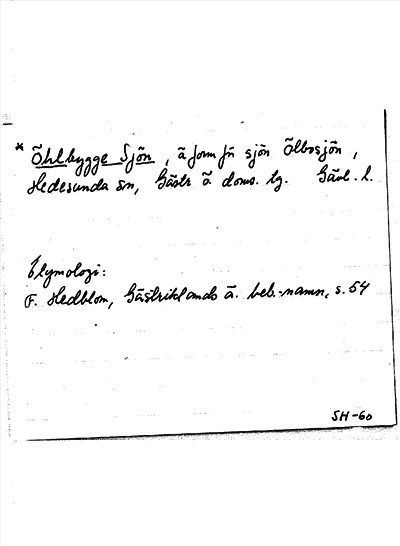 * Öhlbygge Sjön, ä form fr sjön Ölbosjön,
Hedesunda sn, Gästr ö doms. tg. Gävl. l.
Etymologi:
F. Hedblom, Gästriklands ä. beb.-namn, s. 54
SH-60